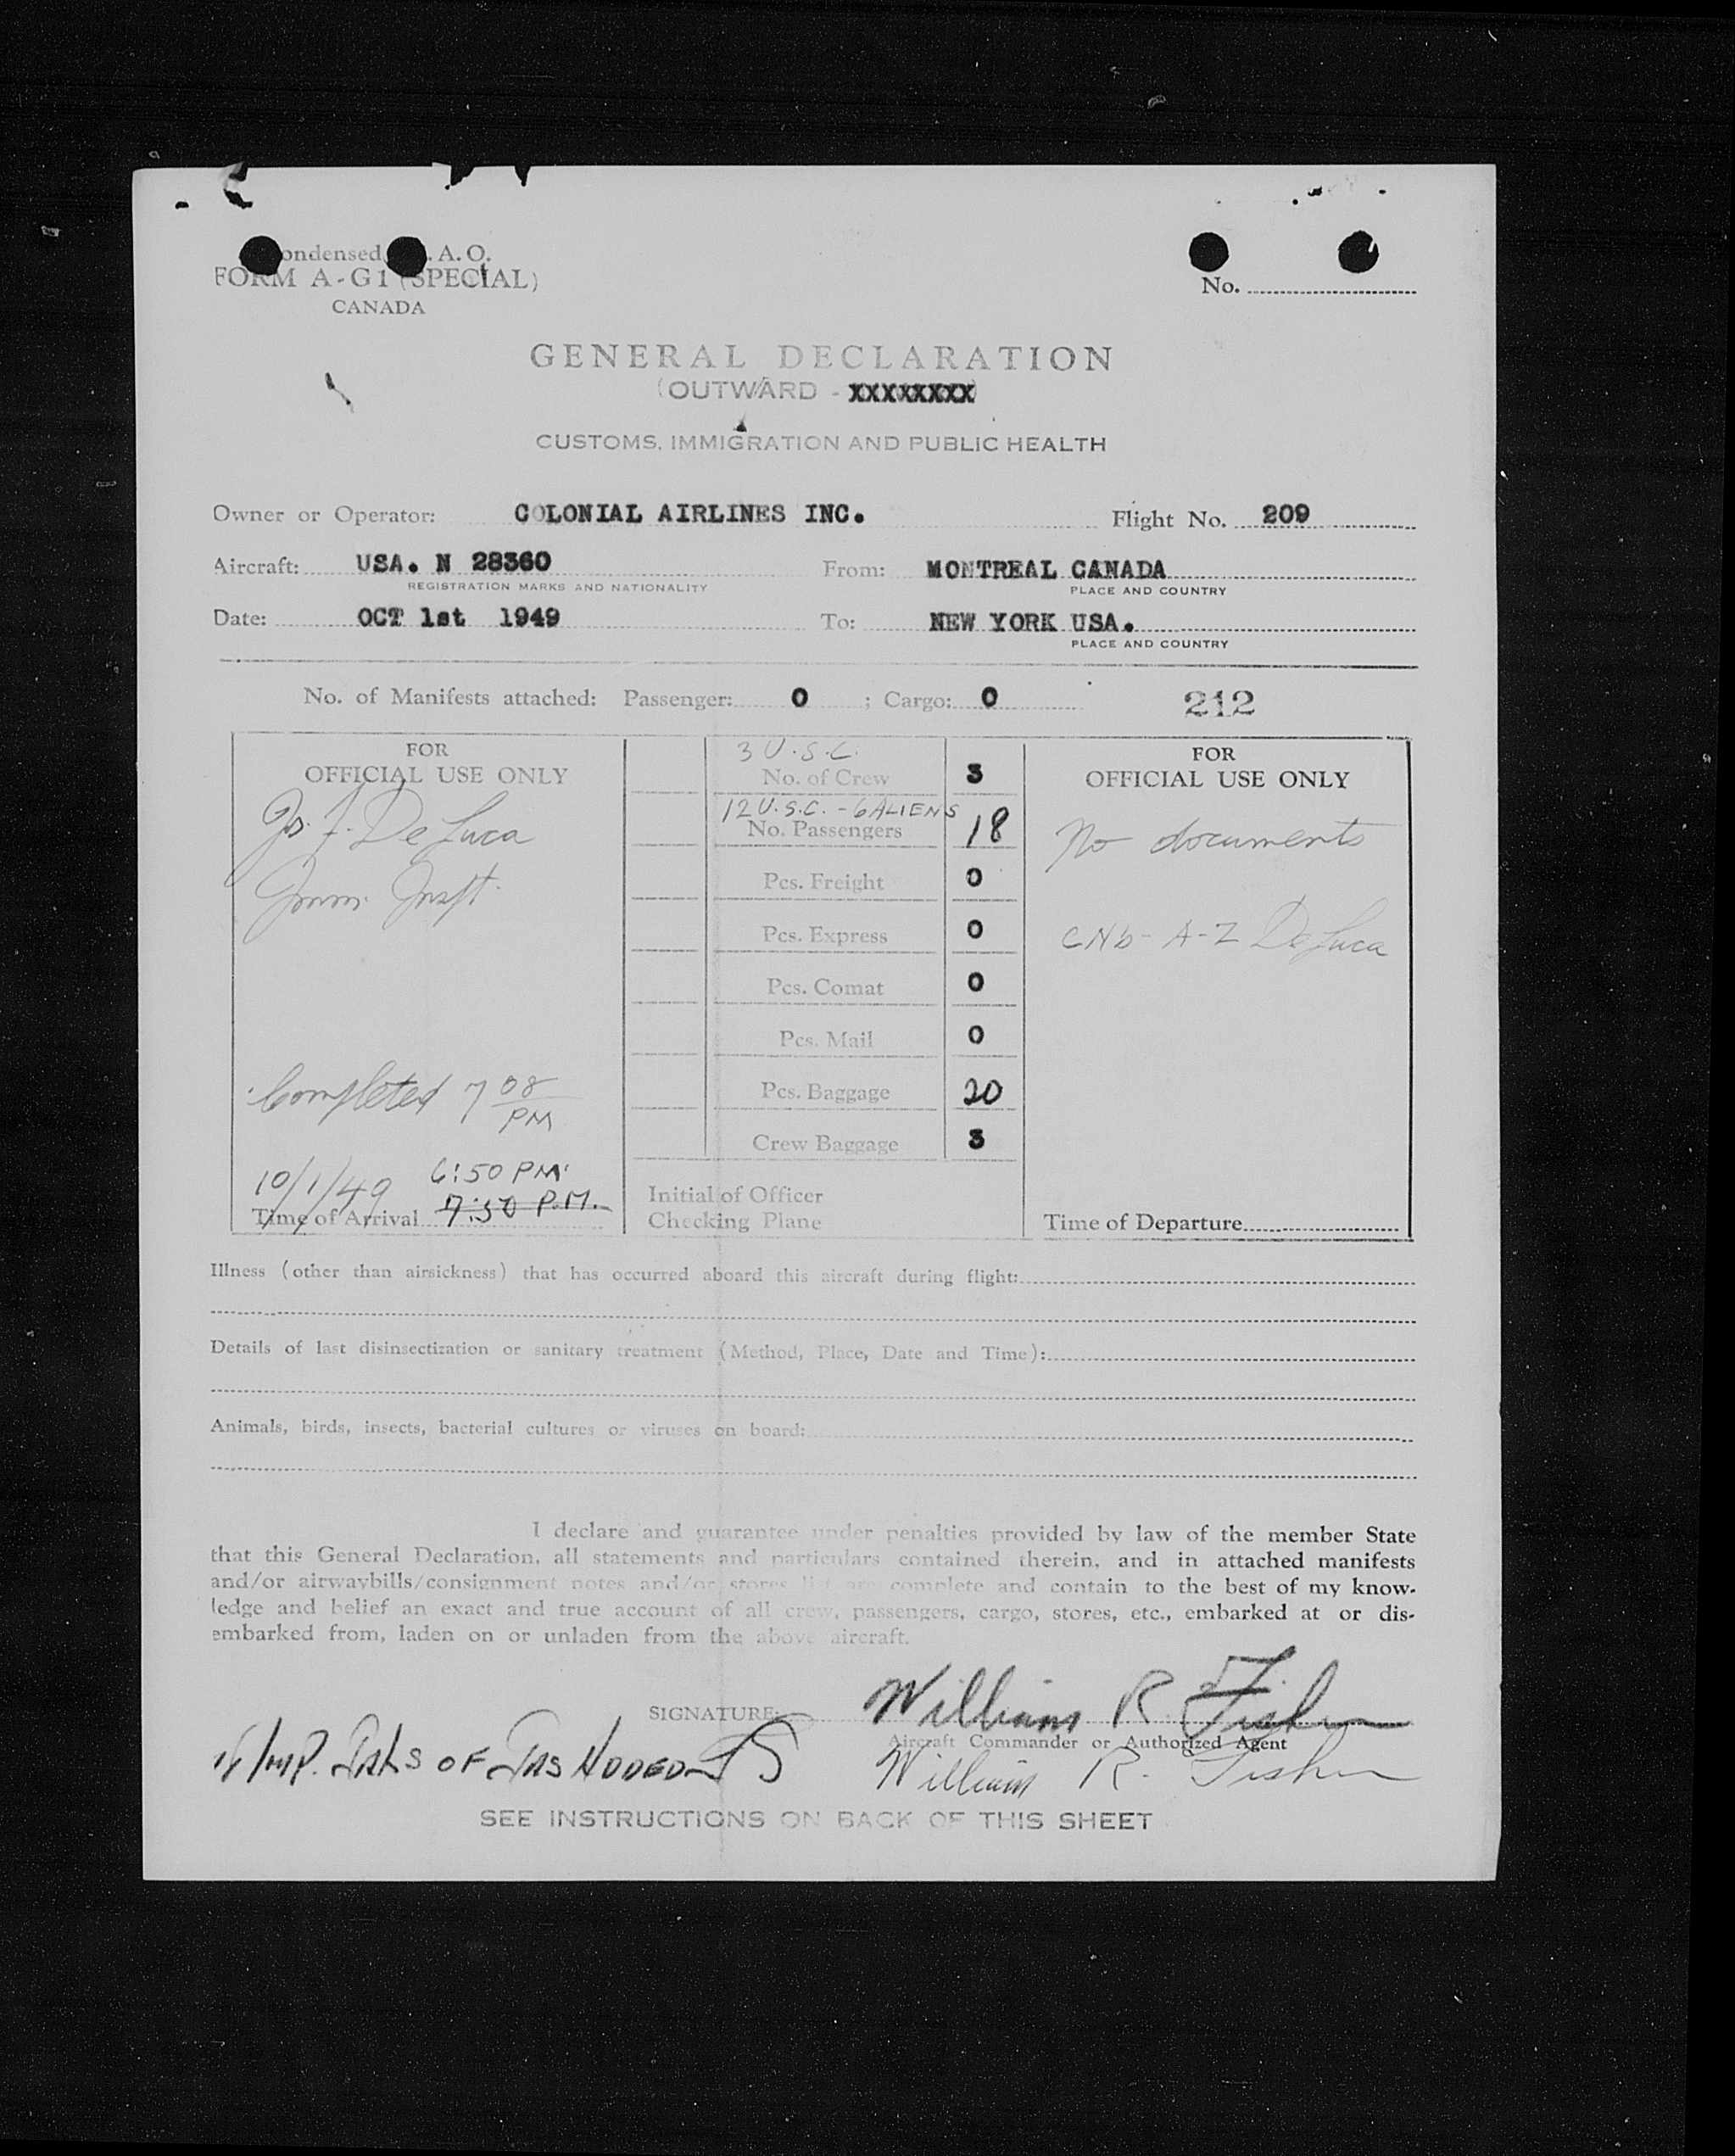 ondensed A. O.
FORM A-G1 (SPECIAL)
CANADA
No.
GENERAL DECLARATION
(OUTWARD - XXXXXXXX)
CUSTOMS, IMMIGRATION AND PUBLIC HEALTH
Owner or Operator: COLONIAL AIRLINES INC. Flight No. 209
Aircraft: USA. N 28360 From: MONTREAL CANADA
REGISTRATION MARKS AND NATIONALITY PLACE AND COUNTRY
Date: OCT 1st 1949 To: NEW YORK USA.
PLACE AND COUNTRY
No. of Manifests attached: Passenger: 0 ; Cargo: 0 212
FOR
OFFICIAL USE ONLY
De Luca
Completed 7 08 PM
10/1/49 6:50 PM
Time of Arrival 7:50 P.M.
3 U.S.C.
No. of Crew 3
12 U.S.C. - 6 ALIENS
No. Passengers 18
Pcs. Freight 0
Pcs. Express 0
Pcs. Comat 0
Pcs. Mail 0
Pcs. Baggage 20
Crew Baggage 3
Initial of Officer
Checking Plane
FOR
OFFICIAL USE ONLY
No documents
A-Z De Luca
Time of Departure
Illness (other than airsickness) that has occurred aboard this aircraft during flight:
Details of last disinsectization or sanitary treatment (Method, Place, Date and Time):
Animals, birds, insects, bacterial cultures or viruses on board:
I declare and guarantee under penalties provided by law of the member State
that this General Declaration, all statements and particulars contained therein, and in attached manifests
and/or airwaybills/consignment notes and/or stores list are complete and contain to the best of my know-
ledge and belief an exact and true account of all crew, passengers, cargo, stores, etc., embarked at or dis-
embarked from, laden on or unladen from the above aircraft.
SIGNATURE: William R. Fisher
Aircraft Commander or Authorized Agent
William R. Fisher
SEE INSTRUCTIONS ON BACK OF THIS SHEET